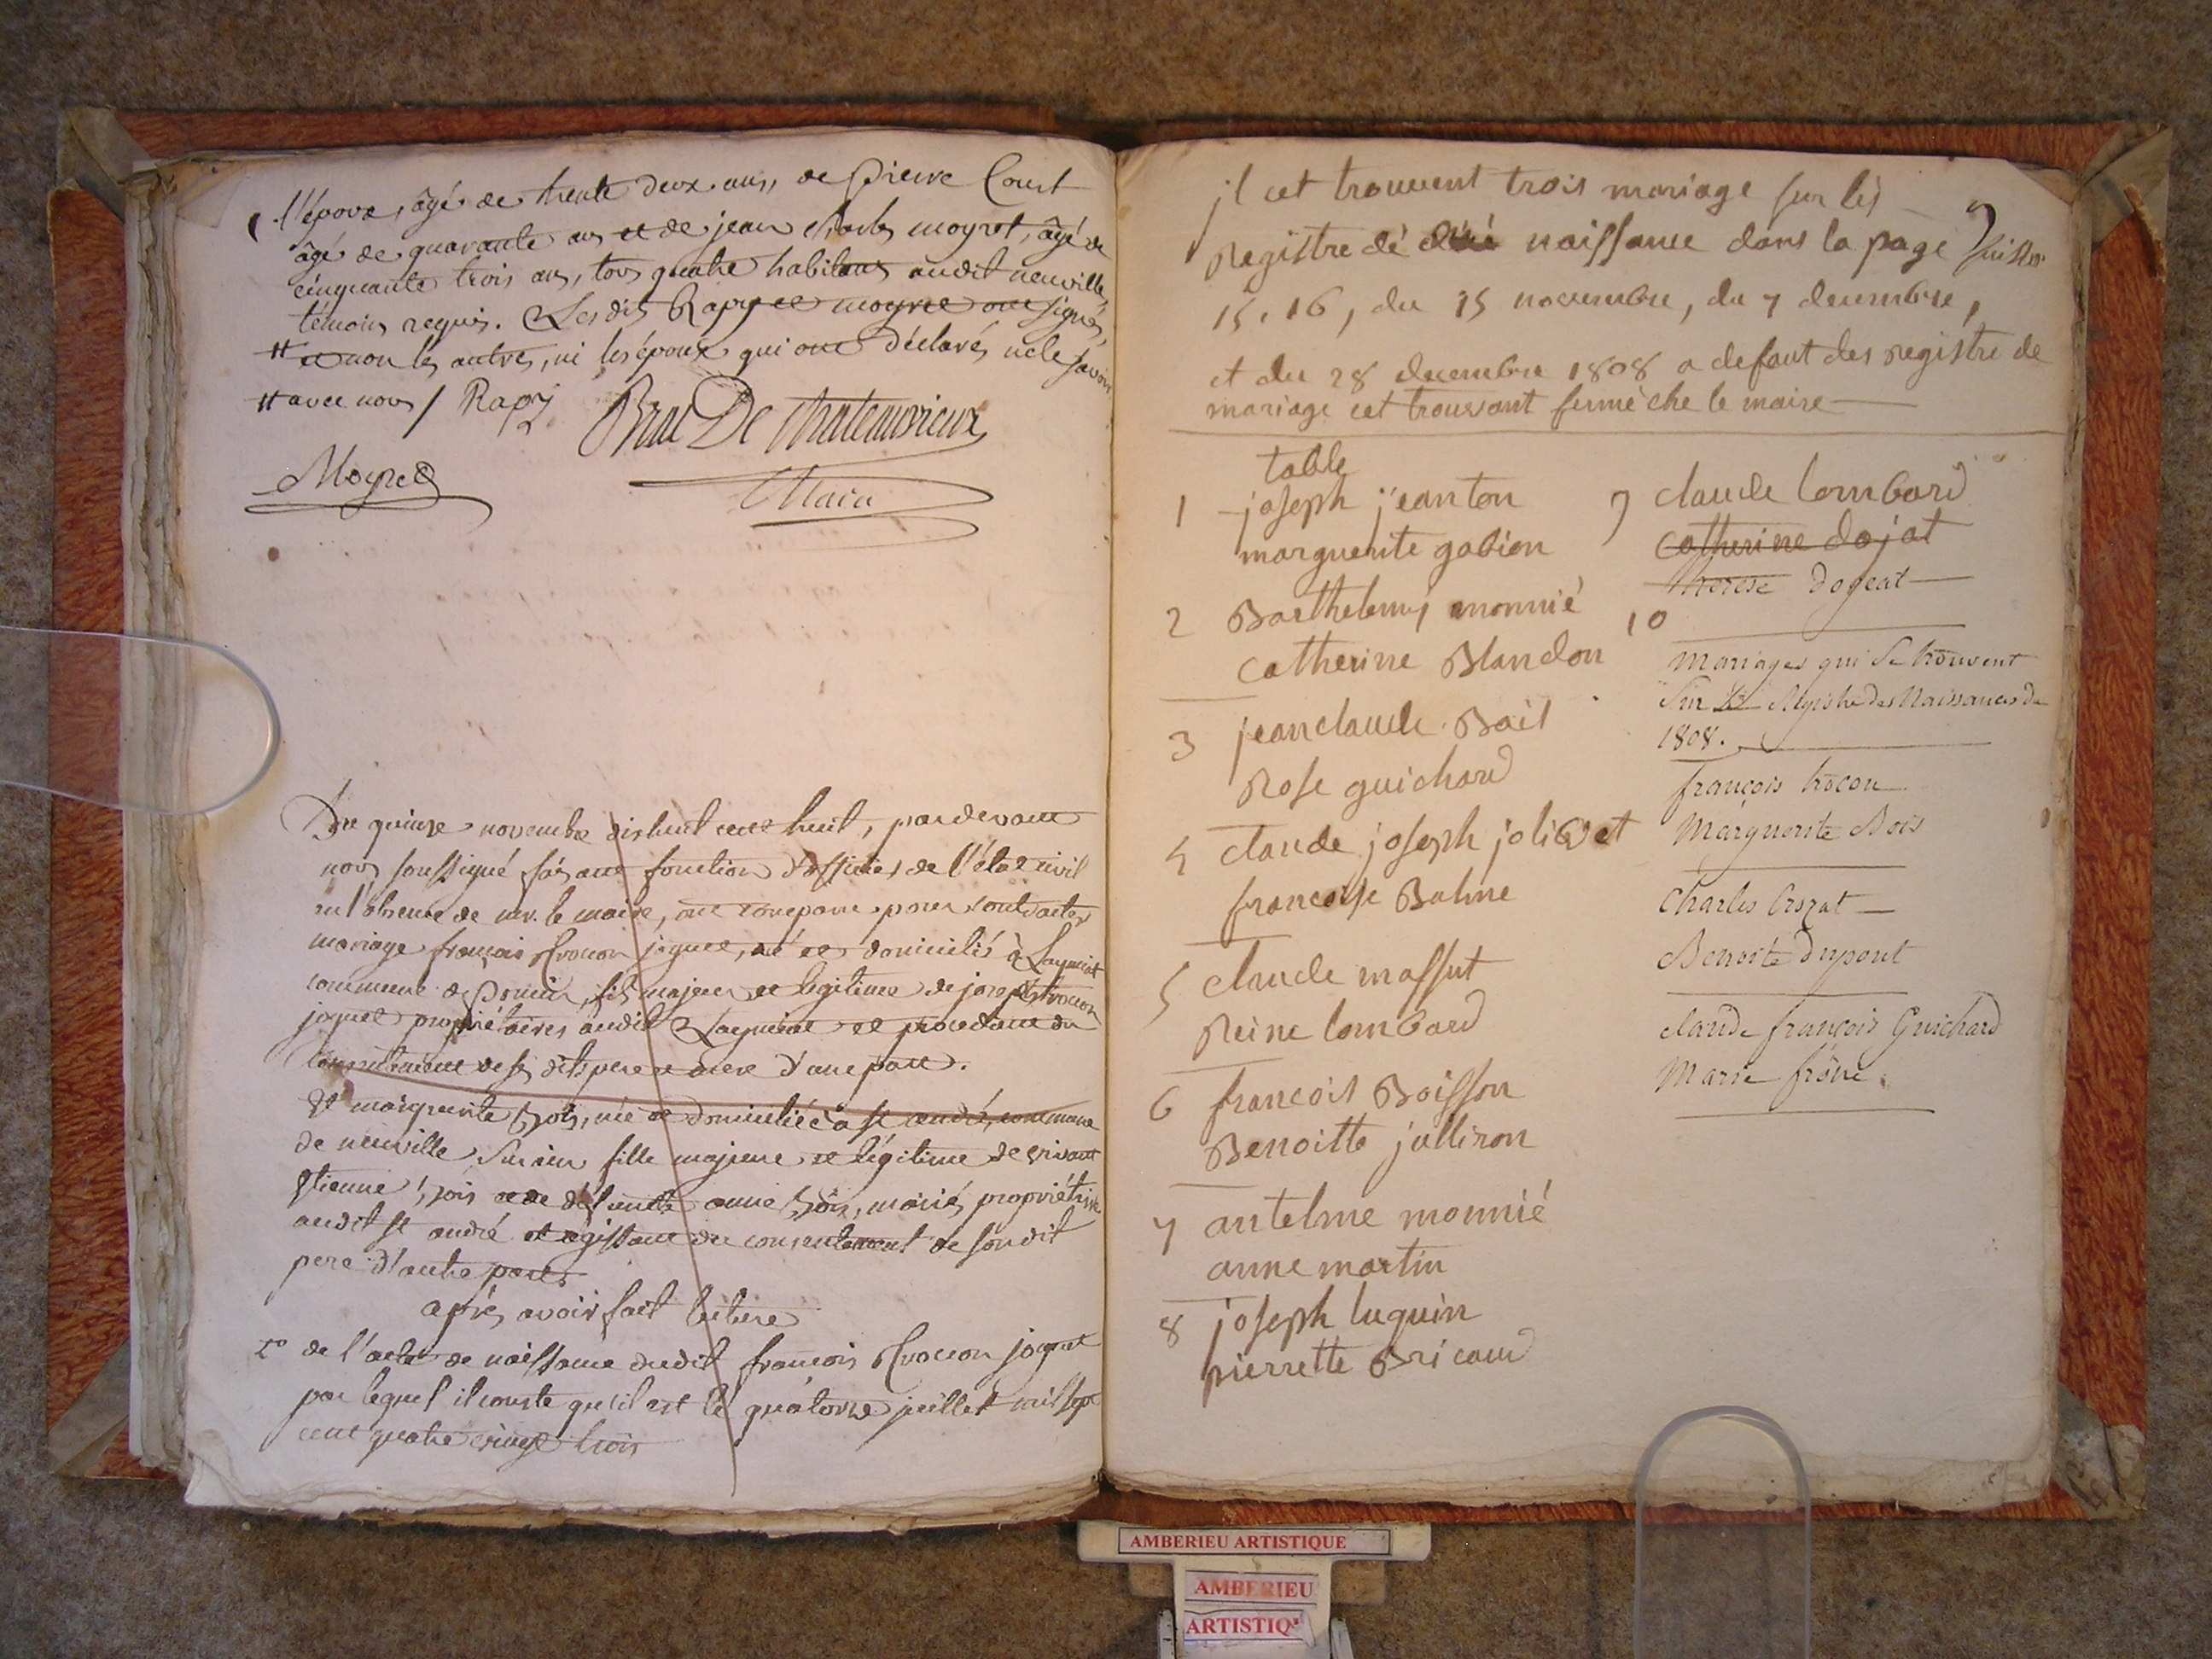 l'époux, âgé de trente deux ans, de Pierre Court
âgé de quarante ans et de jean charles moyret, âgé de
cinquante trois ans, tous quatre habitans audit neuville,
témoins requis. Lesdits Rapy et moyret ont signés,
# et non les autres, ni les époux qui ont déclarés ne le savoir
# avec nous / Rapy
Brac De Chateauvieux
Moyret
Maire
Du quinze novembre dix huit cent huit, pardevant
nous soussigné faisant fonction d'officier de l'état civil
en l'absence de mr. le maire, ont comparu pour contracter
mariage françois trocon joguet, né et domicilié à
commune de fils majeur et légitime de joseph trocon
joguet propriétaires audit et procedant du
consentement de ses dits pere et mere d'une part.
Et marguerite Bois, née et domiciliée à st andré, commune
de neuville sur ain fille majeure et légitime de vivant
Etienne Bois et de défunte anne Bois, mariés, propriétaire
audit st andré et agissant du consentement de son dit
pere d'autre part.
après avoir fait lecture
1° de l'acte de naissance dudit françois trocon joguet
par lequel il conste qu'il est né quatorze juillet mil sept
cent quatre vingt trois
il cet trouvent trois mariage sur les
Registre dé naissance dans la page 9
15, 16, du 15 novembre, du 7 decembre,
et du 28 decembre 1808 a defaut des registre de
mariage cet trouvant fermé che le maire
table
1 joseph jeanton
marguerite gabion
2 Barthelemy monnié
catherine Blandon
3 jean claude Bail
Rose guichard
4 claude joseph jolivet
francoise Balme
5 claude massut
Reine lombard
6 francois Boisson
Benoitte julliron
7 antelme monnié
anne martin
8 joseph luquin
pierrette Bricaud
9 claude lombard
catherine dojat
therese dogeat
10
Mariages qui se trouvent
sur le Registre des Naissances de
1808.
françois trocon
Marguerite Bois
Charles Crozat
Benoite Dupont
claude françois Guichard
Marie frêne.
AMBERIEU ARTISTIQUE
AMBERIEU
ARTISTIQ